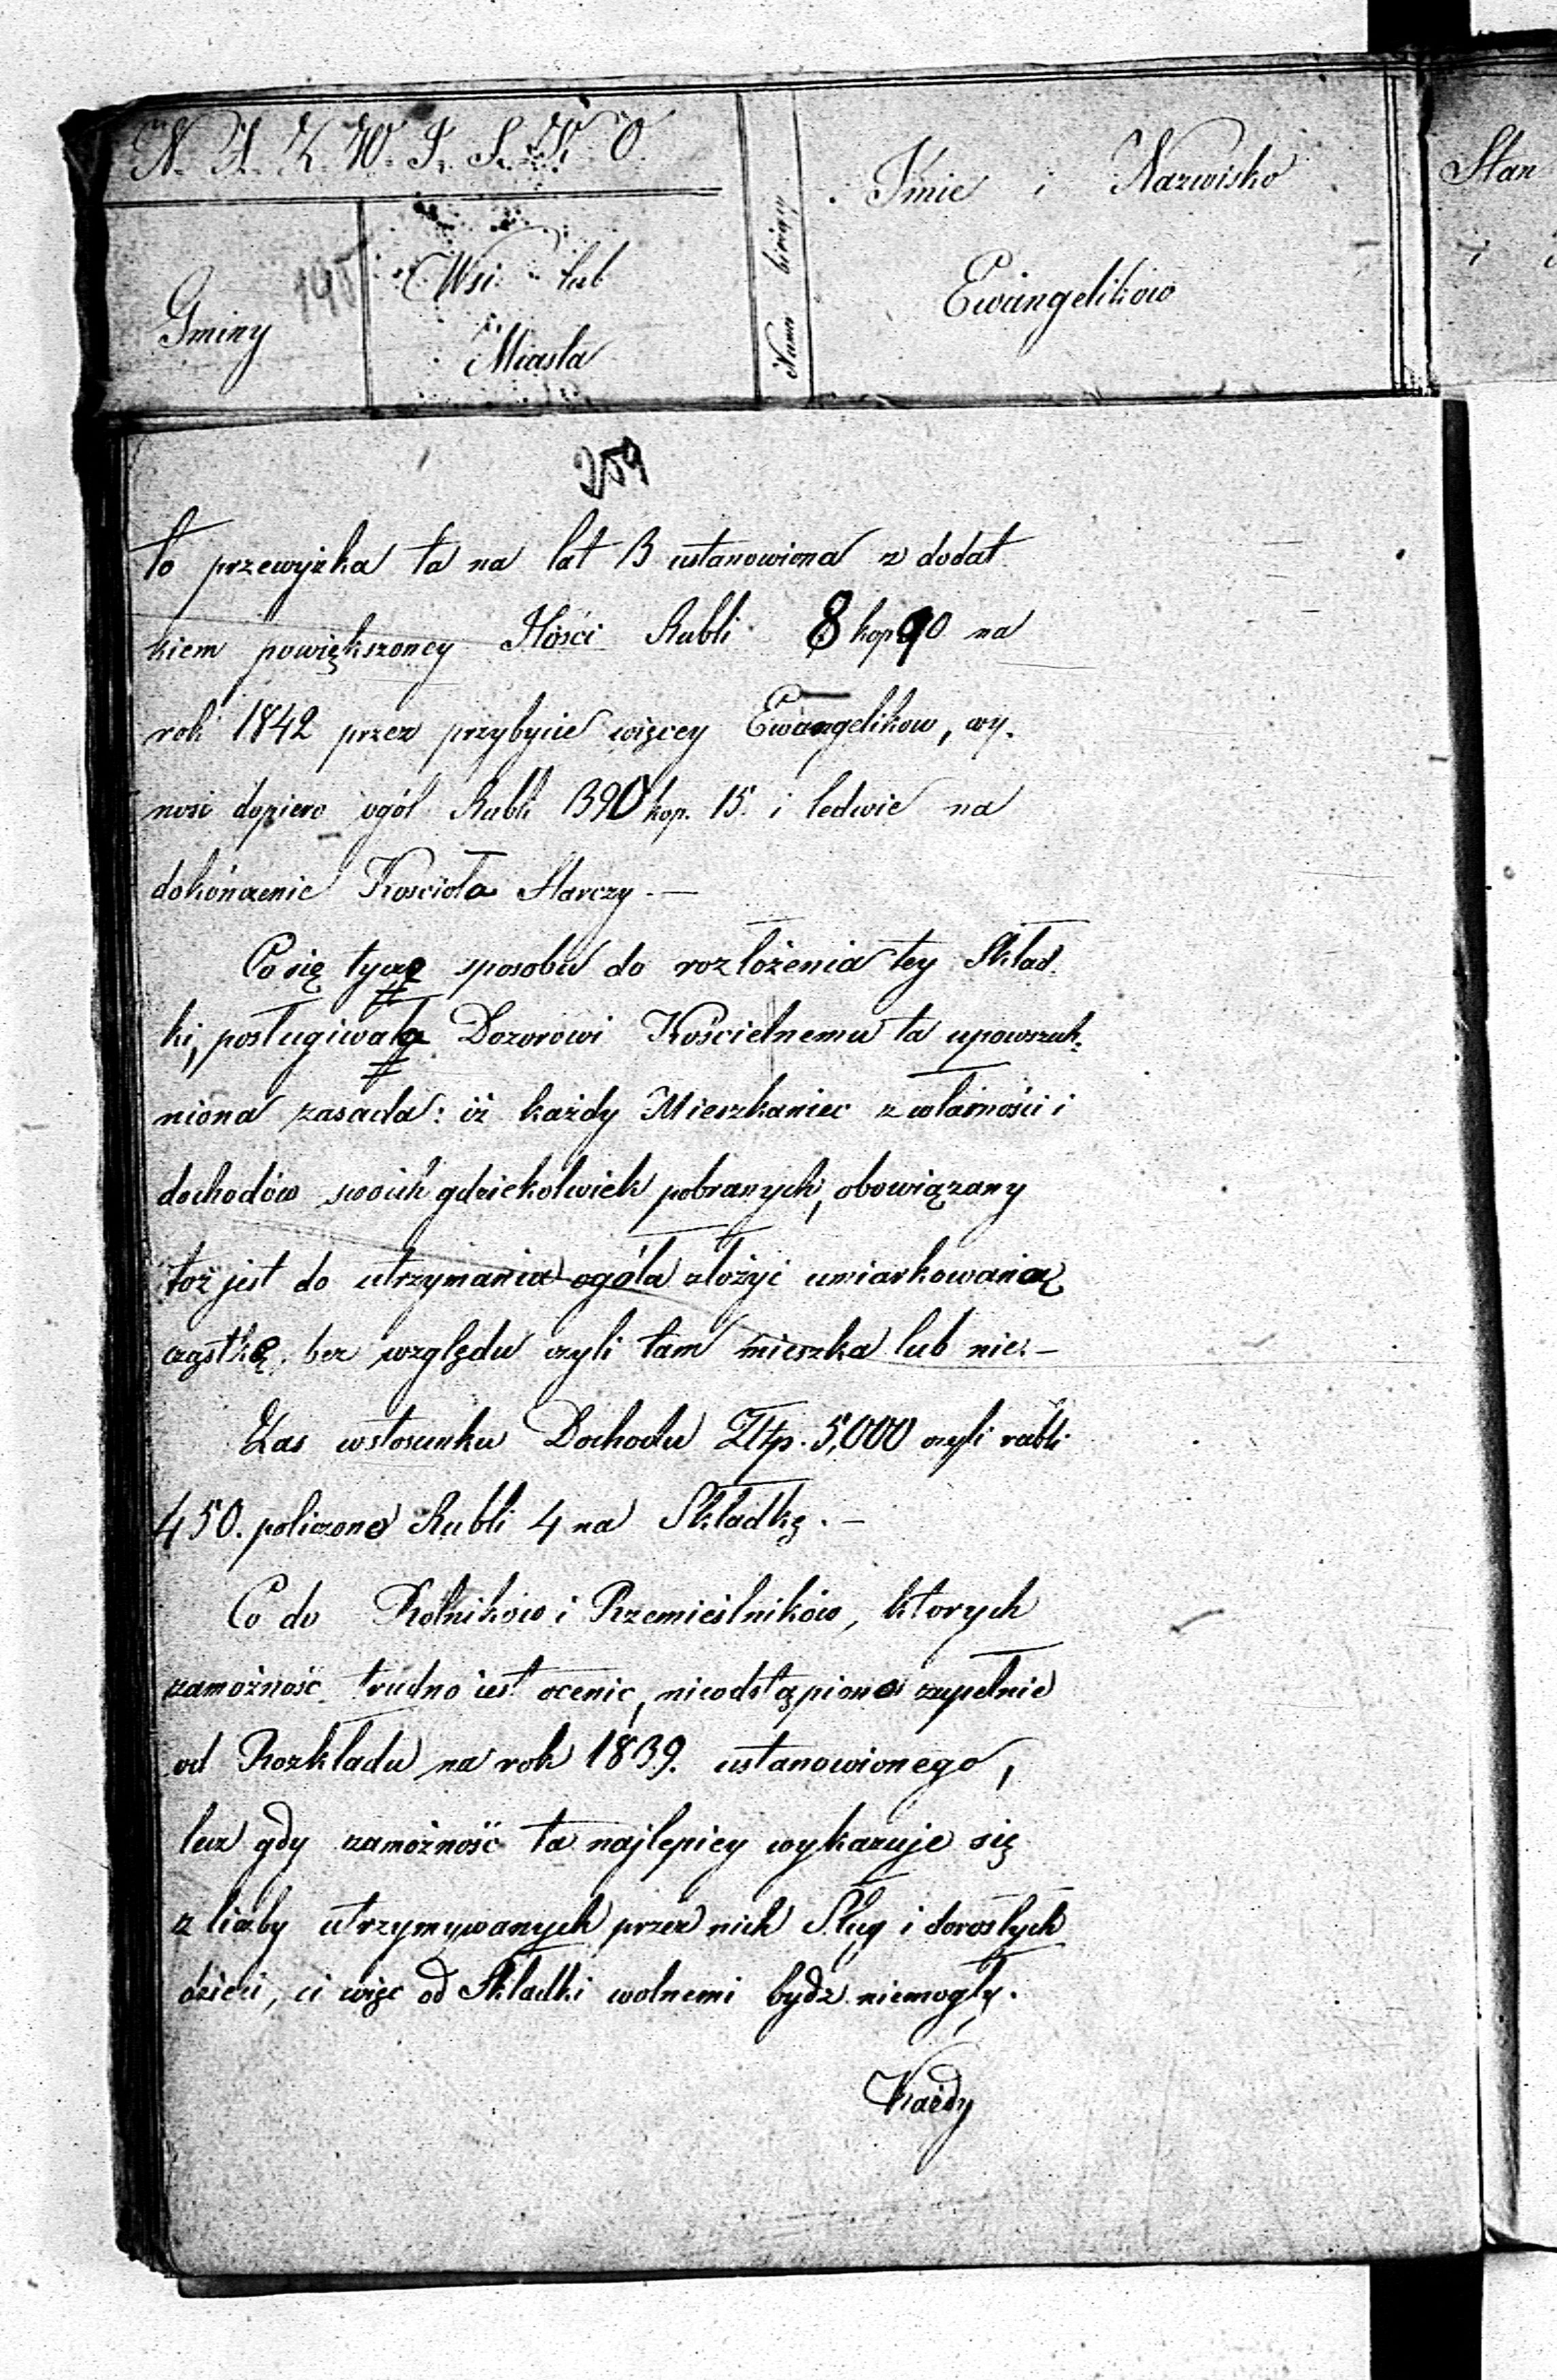 N. A. Z. W. I. S. K. O.
Gminy
195
Wsi lub
Miasta
Numer bieżący
Imie i Nazwisko
Ewangelikow
Stan
i
259
to przewyżka ta na lat 3 ustanowiona z dodat
kiem powiększoney Ilości Rubli 8 kop 90 na
rok 1842 przez przybycie więcey Ewangelikow, wy.
nosi dopiero ogół Rubli 390 kop. 15. i ledwie na
dokończenie Kościoła starczy. —
Co się tycze sposobu do rozłożenia tey Skład.
ki, posługiwała Dozorowi Kościelnemu ta upowszech.
niona zasada: iż każdy Mieszkaniec z własności i
dochodów swoich gdziekolwiek pobranych, obowiązany
też jest do utrzymania ogóła złożyć umiarkowaną
cząstkę. bez względu czyli tam mieszka lub nie. —
Zas wstosunku Dochodu Złtp. 5,000 czyli rubli
450. policzono Rubli 4 na Składkę. —
Co do Rolników i Rzemieślników, ktorych
zamożność trudno iest ocenić, nieodstąpiono zupełnie
od Rozkładu na rok 1839. ustanowionego,
lecz gdy zamożność ta najlepiey wykazuje się
z liczby utrzymywanych przez nich Sług i dorosłych
dzieci, ci więc od Składki wolnemi bydz niemogły.
Każdy